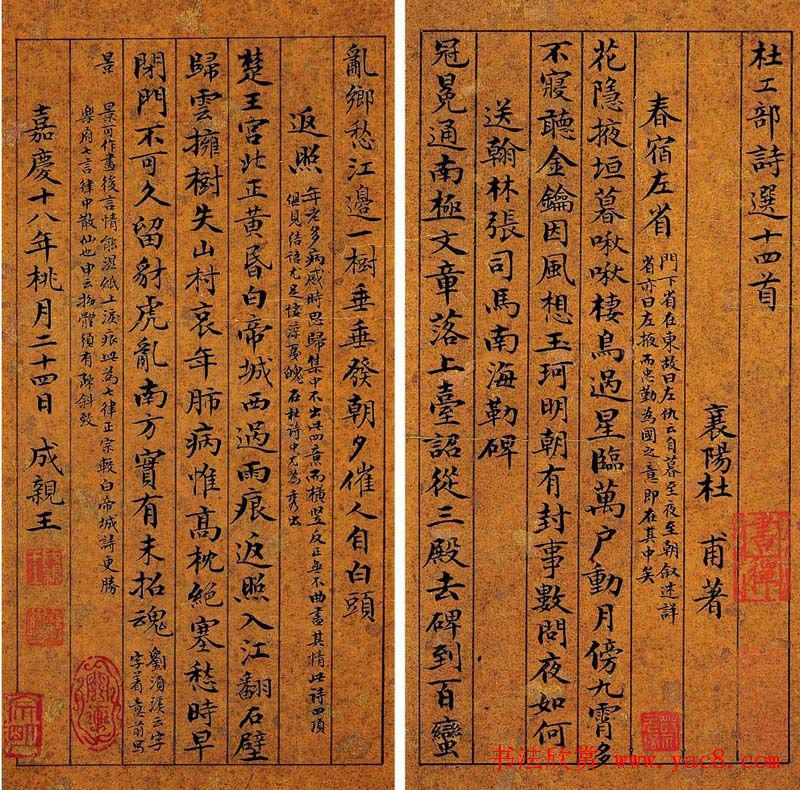 杜工部詩選十四首
襄陽杜 甫著
春宿左省
門下省在東故曰左仇云自暮至夜至朝叙述詳
省亦曰左掖而忠勤為國之意即在其中矣
花隱掖垣暮啾啾棲鳥過星臨萬户動月傍九霄多
不寢聽金鑰因風想玉珂明朝有封事數問夜如何
送翰林張司馬南海勒碑
冠冕通南極文章落上臺詔從三殿去碑到百蠻
亂鄉愁江邊一樹垂垂發朝夕催人自白頭
返照
年老多病感時思歸集中不出此四意而橫竪反正無不曲盡其情此詩四項
但見結語尤足悽魄在杜詩中尤為秀出
楚王宮北正黃昏白帝城西過雨痕返照入江翻石壁
歸雲擁樹失山村哀年肺病惟高枕絕塞愁時早
閉門不可久留豺虎亂南方實有未招魂
劉須溪云字
字着意前寫
景
景可作畫後言情能濕紙上淚痕此為七律正宗較白帝城詩更勝
樂府七言律中散仙也申云拗體須有斜致
嘉慶十八年桃月二十四日 成親王
书法欣赏 www.yac8.com